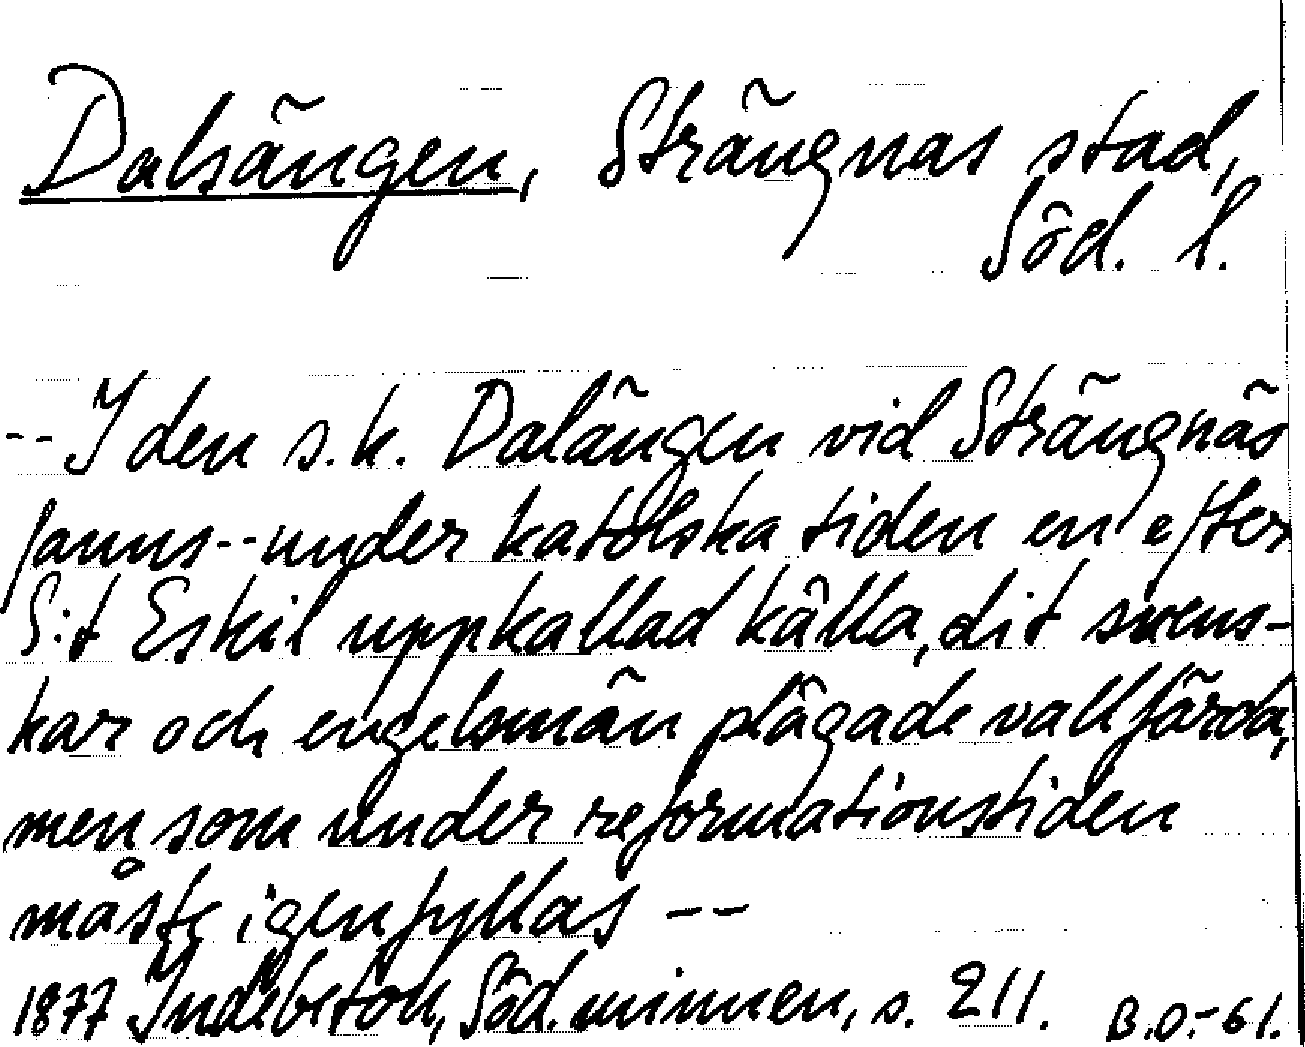 Dalsängen, Strängnas stad,
Söd. l.
-- I den s.k. Dalängen vid Strängnäs
fanns -- under katolska tiden en efter
S:t Eskil uppkallad källa, dit svens-
kar och engelsmän plägade vallfärda,
men som under reformationstiden
måste igenfyllas --
1877 Indebetou, Söd. minnen, s. 211. B.O.-61.